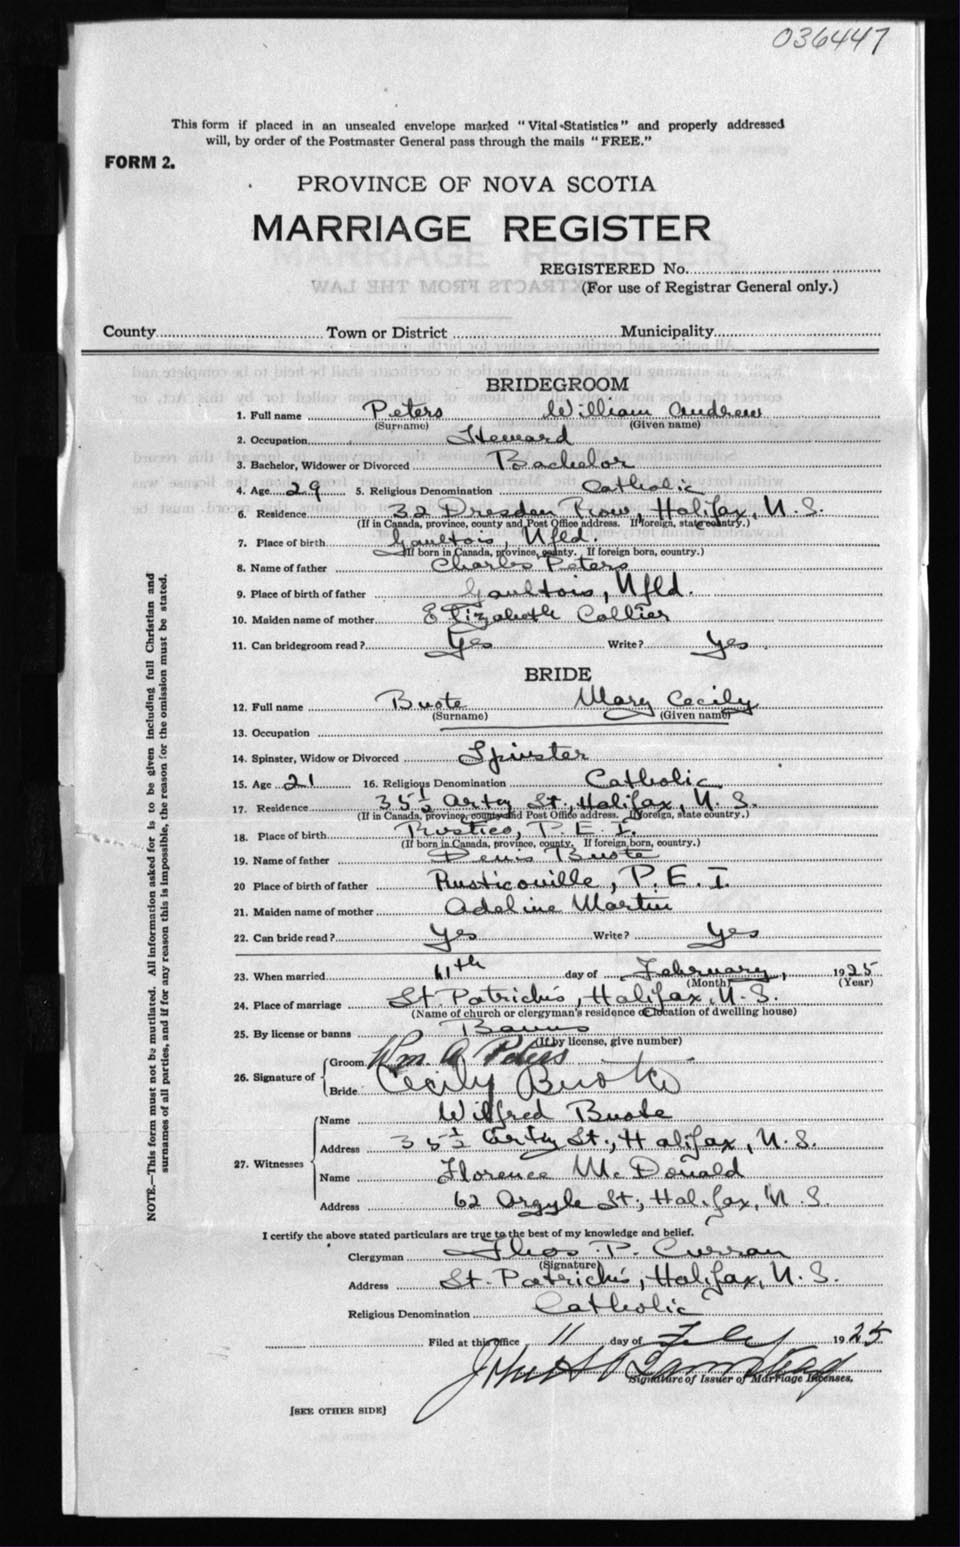 036447
This form if placed in an unsealed envelope marked "Vital Statistics" and properly addressed
will, by order of the Postmaster General pass through the mails "FREE."
FORM 2.
PROVINCE OF NOVA SCOTIA
MARRIAGE REGISTER
REGISTERED No.
(For use of Registrar General only.)
County Town or District Municipality
BRIDEGROOM
1. Full name Peters William Andrew
(Surname) (Given name)
2. Occupation Steward
3. Bachelor, Widower or Divorced Bachelor
4. Age 29 5. Religious Denomination Catholic
6. Residence 32 Dresden Row, Halifax, N.S.
(If in Canada, province, county and Post Office address. If foreign, state country.)
7. Place of birth Gaultois, Nfld.
(If born in Canada, province, county. If foreign born, country.)
8. Name of father Charles Peters
9. Place of birth of father Gaultois, Nfld.
10. Maiden name of mother Elizabeth Collier
11. Can bridegroom read? Yes Write? Yes
BRIDE
12. Full name Buote Mary Cecily
(Surname) (Given name)
13. Occupation
14. Spinster, Widow or Divorced Spinster
15. Age 21 16. Religious Denomination Catholic
17. Residence 35½ Arty St., Halifax, N.S.
(If in Canada, province, county and Post Office address. If foreign, state country.)
18. Place of birth Rustico, P.E.I.
(If born in Canada, province, county. If foreign born, country.)
19. Name of father Denis Buote
20 Place of birth of father Rusticoville, P.E.I.
21. Maiden name of mother Adeline Martin
22. Can bride read? Yes Write? Yes
23. When married 11th day of February, 1925
(Month) (Year)
24. Place of marriage St. Patrick's, Halifax, N.S.
(Name of church or clergyman's residence or location of dwelling house)
25. By license or banns Banns
(If by license, give number)
26. Signature of Groom Wm. A Peters
Bride Cecily Buote
27. Witnesses Name Wilfred Buote
Address 35½ Arty St., Halifax, N.S.
Name Florence McDonald
Address 62 Argyle St., Halifax, N.S.
I certify the above stated particulars are true to the best of my knowledge and belief.
Clergyman Thos. P. Curran
(Signature)
Address St. Patrick's, Halifax, N.S.
Religious Denomination Catholic
Filed at this office 11 day of Feby 1925
John H
Signature of Issuer of Marriage Licenses.
[SEE OTHER SIDE]
NOTE.—This form must not be mutilated. All information asked for is to be given including full Christian and
surnames of all parties, and if for any reason this is impossible, the reason for the omission must be stated.